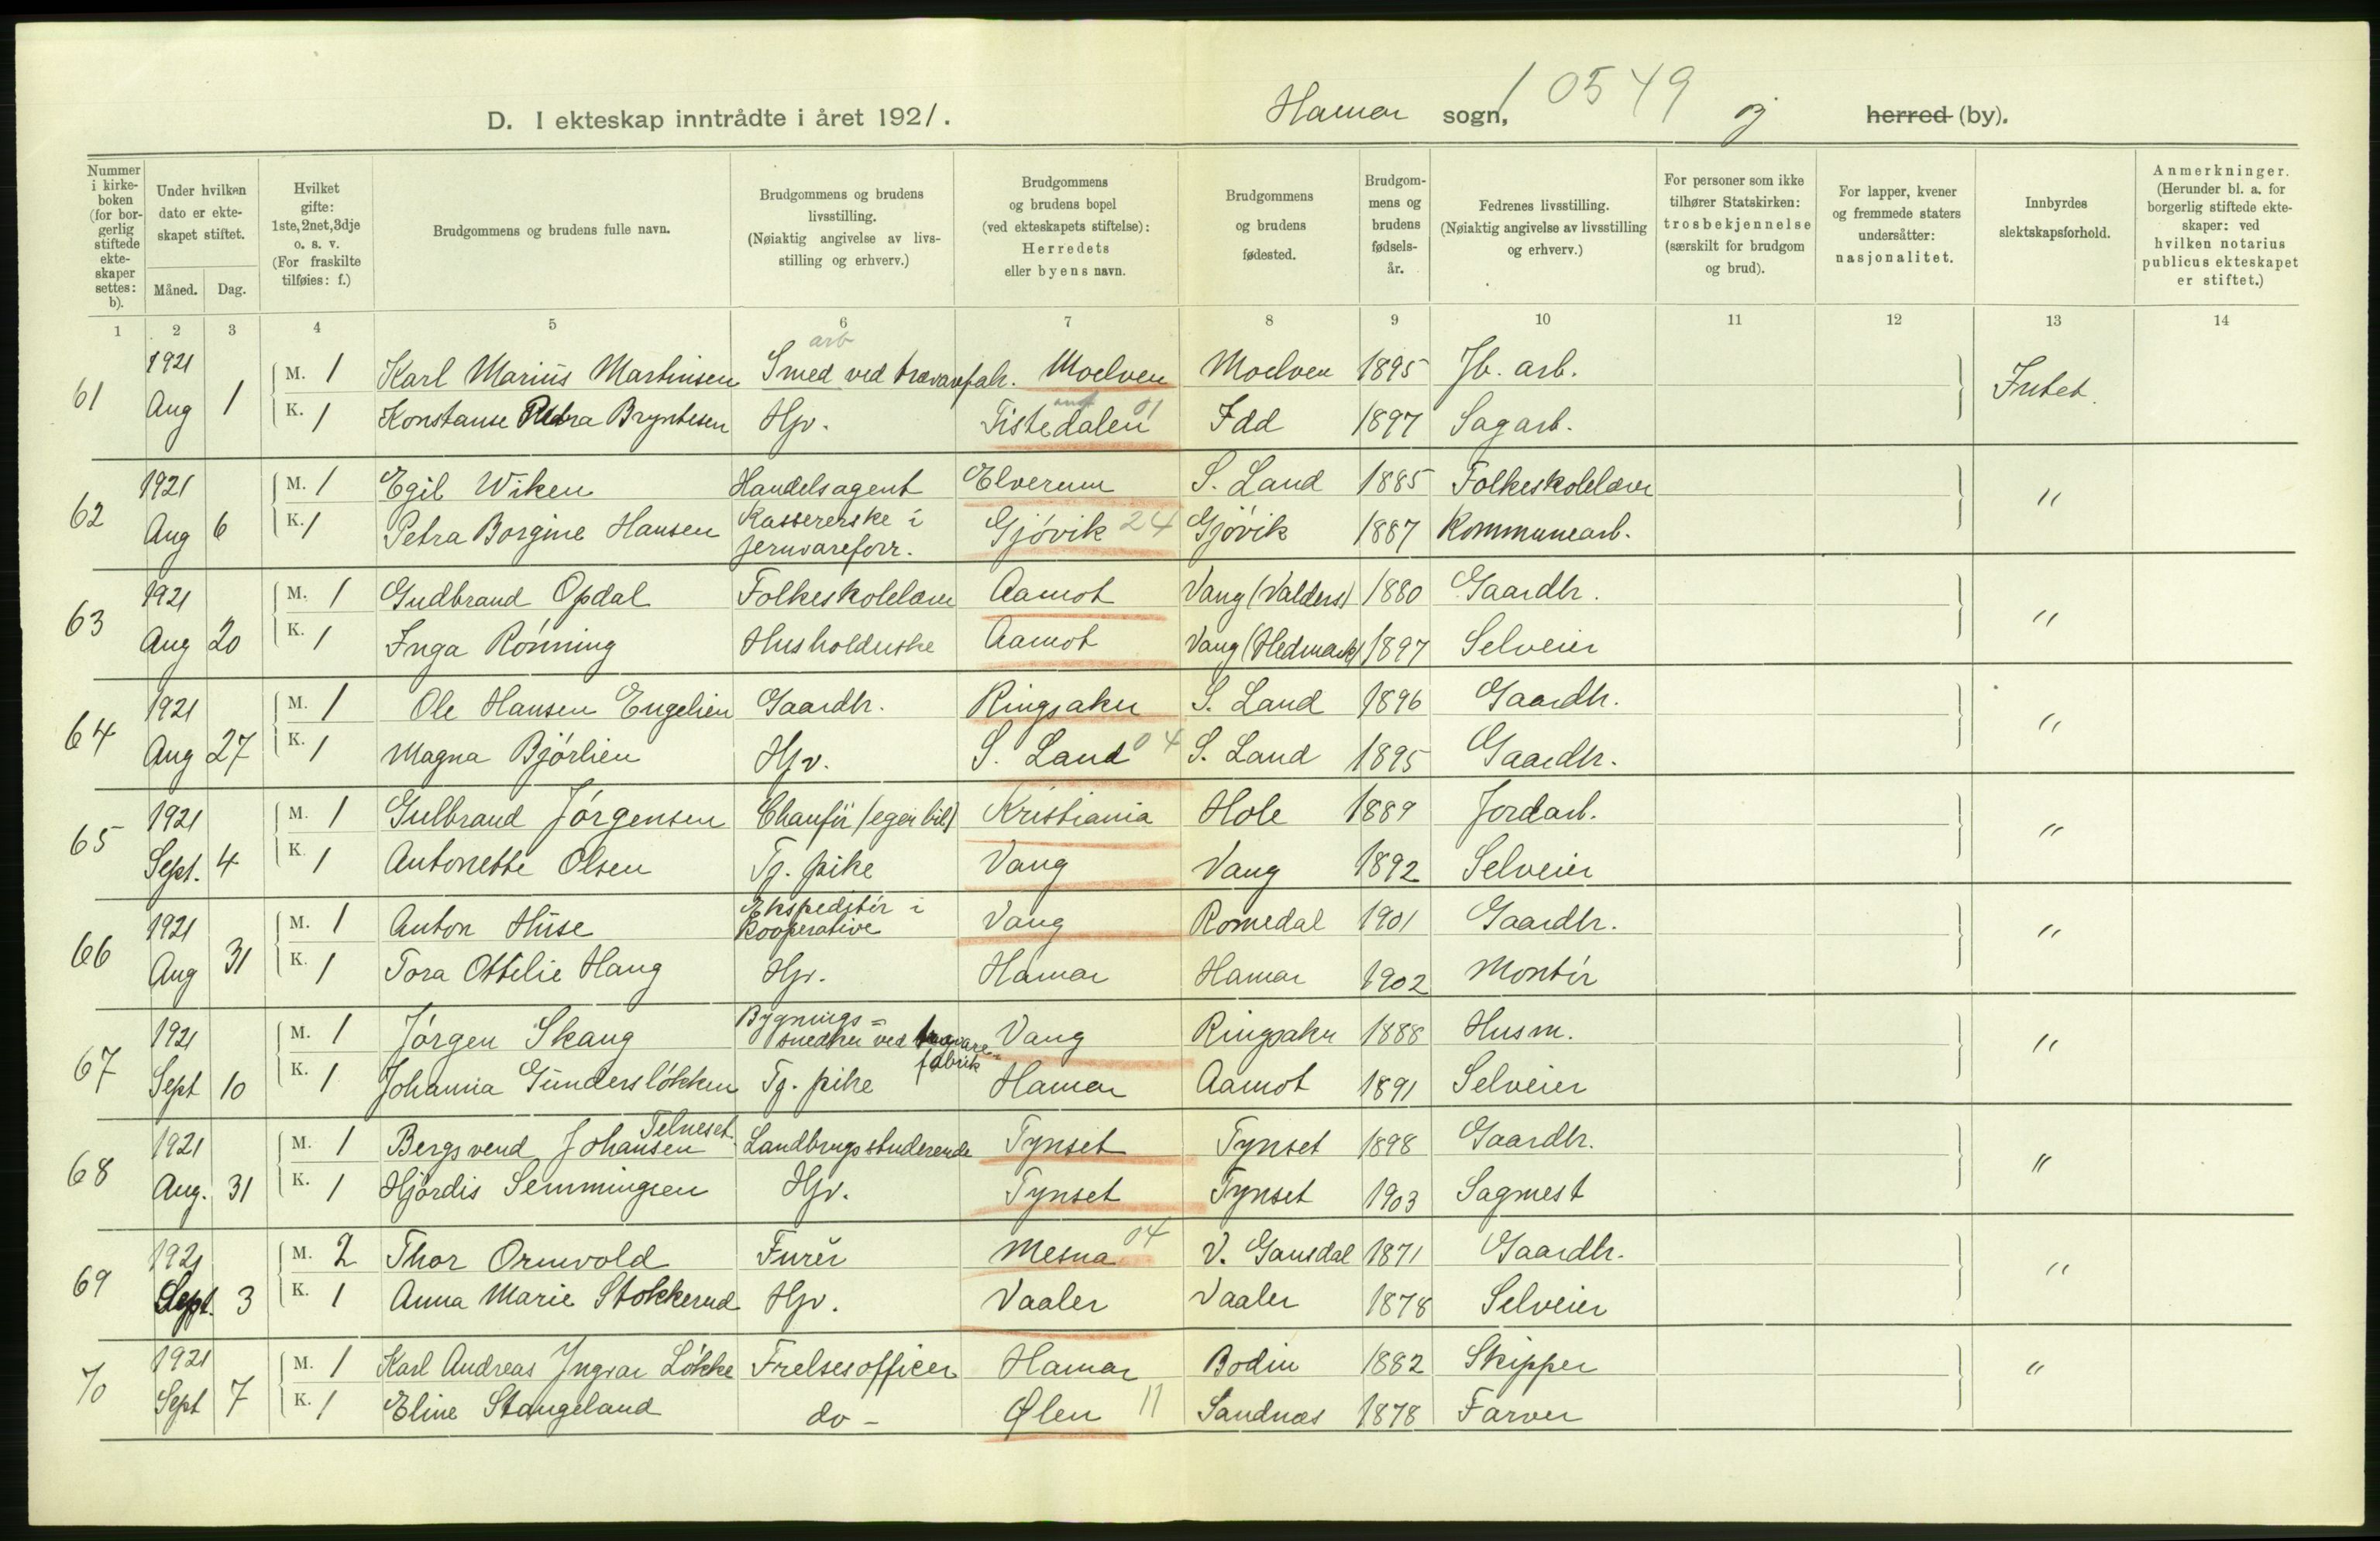 D. I ekteskap inntrådte i året 1921.
Hamar sogn, 10549 herred (by).
Nummer i kirke-boken (for bor-gerlig stiftede ekte-skaper settes: b).
Under hvilken dato er ekte-skapet stiftet.
Måned. Dag.
Hvilket gifte: 1ste, 2net, 3dje o. s. v. (For fraskilte tilføies: f.)
Brudgommens og brudens fulle navn.
Brudgommens og brudens livsstilling. (Nøiaktig angivelse av livs-stilling og erhverv.)
Brudgommens og brudens bopel (ved ekteskapets stiftelse): Herredets eller byens navn.
Brudgommens og brudens fødested.
Brudgom-mens og brudens fødsels-år.
Fedrenes livsstilling. (Nøiaktig angivelse av livsstilling og erhverv.)
For personer som ikke tilhører Statskirken: trosbekjennelse (særskilt for brudgom og brud).
For lapper, kvener og fremmede staters undersåtter: nasjonalitet.
Innbyrdes slektskapsforhold.
Anmerkninger. (Herunder bl. a. for borgerlig stiftede ekte-skaper: ved hvilken notarius publicus ekteskapet er stiftet.)
1 2 3 4 5 6 7 8 9 10 11 12 13 14
arb
61 1921 M. 1 Karl Marius Martinsen Smed ved trævarefabr. Moelven Moelven 1895 Jb. arb. Intet.
Aug 1 K. 1 Konstanse Petra Bryntesen Hjv. Tistedalen 01 Idd 1897 Sagarb.
62 1921 M. 1 Egil Wiken Handelsagent Elverum S. Land 1885 Folkeskolelærer "
Aug 6 K. 1 Petra Borgine Hansen Kassererske i jernvareforr. Gjövik 24 Gjövik 1887 Kommunearb.
63 1921 M. 1 Gudbrand Opdal Folkeskolelærer Aamot Vang (Valders) 1880 Gaardbr. "
Aug 20 K. 1 Inga Rönning Husholderske Aamot Vang (Hedmark) 1897 Selveier
64 1921 M. 1 Ole Hansen Engelien Gaardbr. Ringsaker S. Land 1896 Gaardbr. "
Aug 27 K. 1 Magna Bjórlien Hjv. S. Land 04 S. Land 1895 Gaardbr.
65 1921 M. 1 Gulbrand Jörgensen Chaufför (egen bil) Kristiania Hole 1889 Jordarb. "
Sept. 4 K. 1 Antonette Olsen Tj. pike Vang Vang 1892 Selveier
66 1921 M. 1 Anton Huse Ekspeditör i Kooperative Vang Romedal 1901 Gaardbr. "
Aug 31 K. 1 Tora Ottilie Haug Hjv. Hamar Hamar 1902 Montör
67 1921 M. 1 Jörgen Skaug Bygnings= snedker ved trævare=fabrik Vang Ringsaker 1888 Husm. "
Sept 10 K. 1 Johanna Gunderslökken Tj. pike Hamar Aamot 1891 Selveier
68 1921 M. 1 Bergsvend Johansen Telneset Landbrugsstuderende Tynset Tynset 1898 Gaardbr. "
Aug. 31 K. 1 Hjördis Semmingsen Hjv. Tynset Tynset 1903 Sagmest
69 1921 M. 2 Thor Ormvold Furér Mesna 04 V. Gausdal 1871 Gaardbr. "
Sept. 3 K. 1 Anna Marie Stokkerud Hjv. Vaaler Vaaler 1878 Selveier
70 1921 M. 1 Karl Andreas Yngvar Lökke Frelsesofficer Hamar Bodin 1882 Skipper "
Sept 7 K. 1 Eline Stangeland do - Ølen 11 Sandnæs 1878 Farver